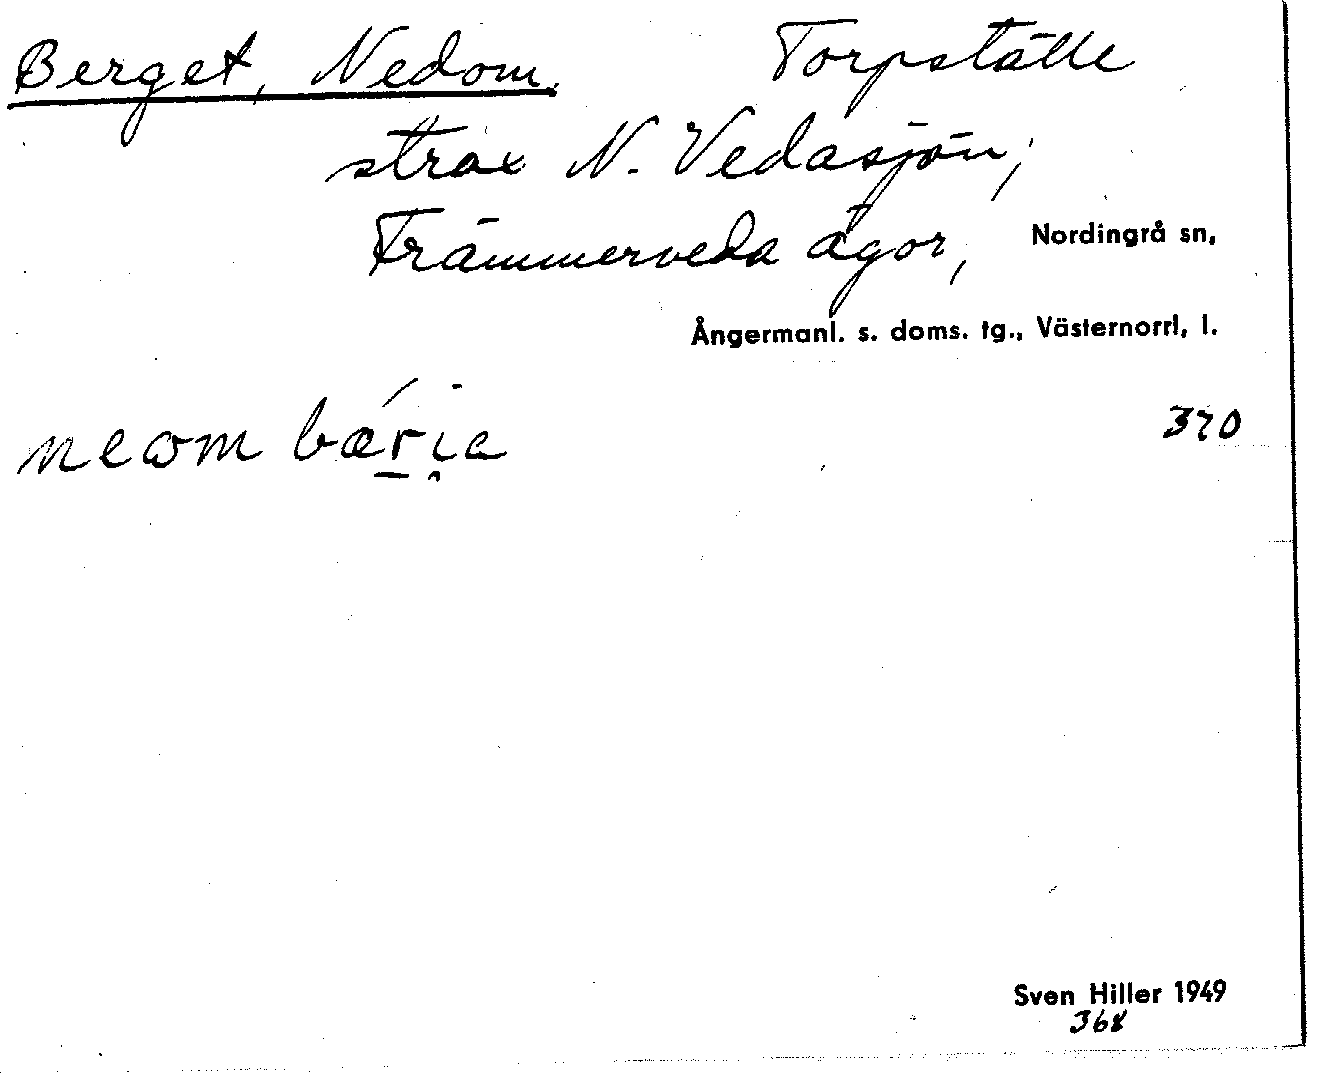 Berget, Nedom. Torpställe
strax N. Vedasjön,
Främmerveda ägor, Nordingrå sn,
Ångermanl. s. doms. tg., Västernorrl, l.
370
Sven Hiller 1949
368